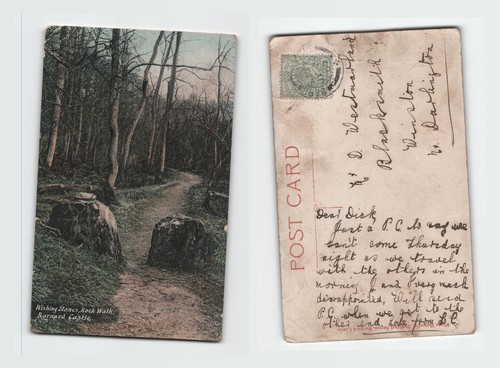 Wishing Stones, Rock Walk,
Barnard Castle.
POST CARD
D Westmorland
Blacksmith
Winston
Nr Darlington
Dear Dick,
Just a P.C. to say we
can't come Thursday
night as we travel
with the others in the
morning, J and I very much
disappointed, Will send
P.C. when we get to the
other end